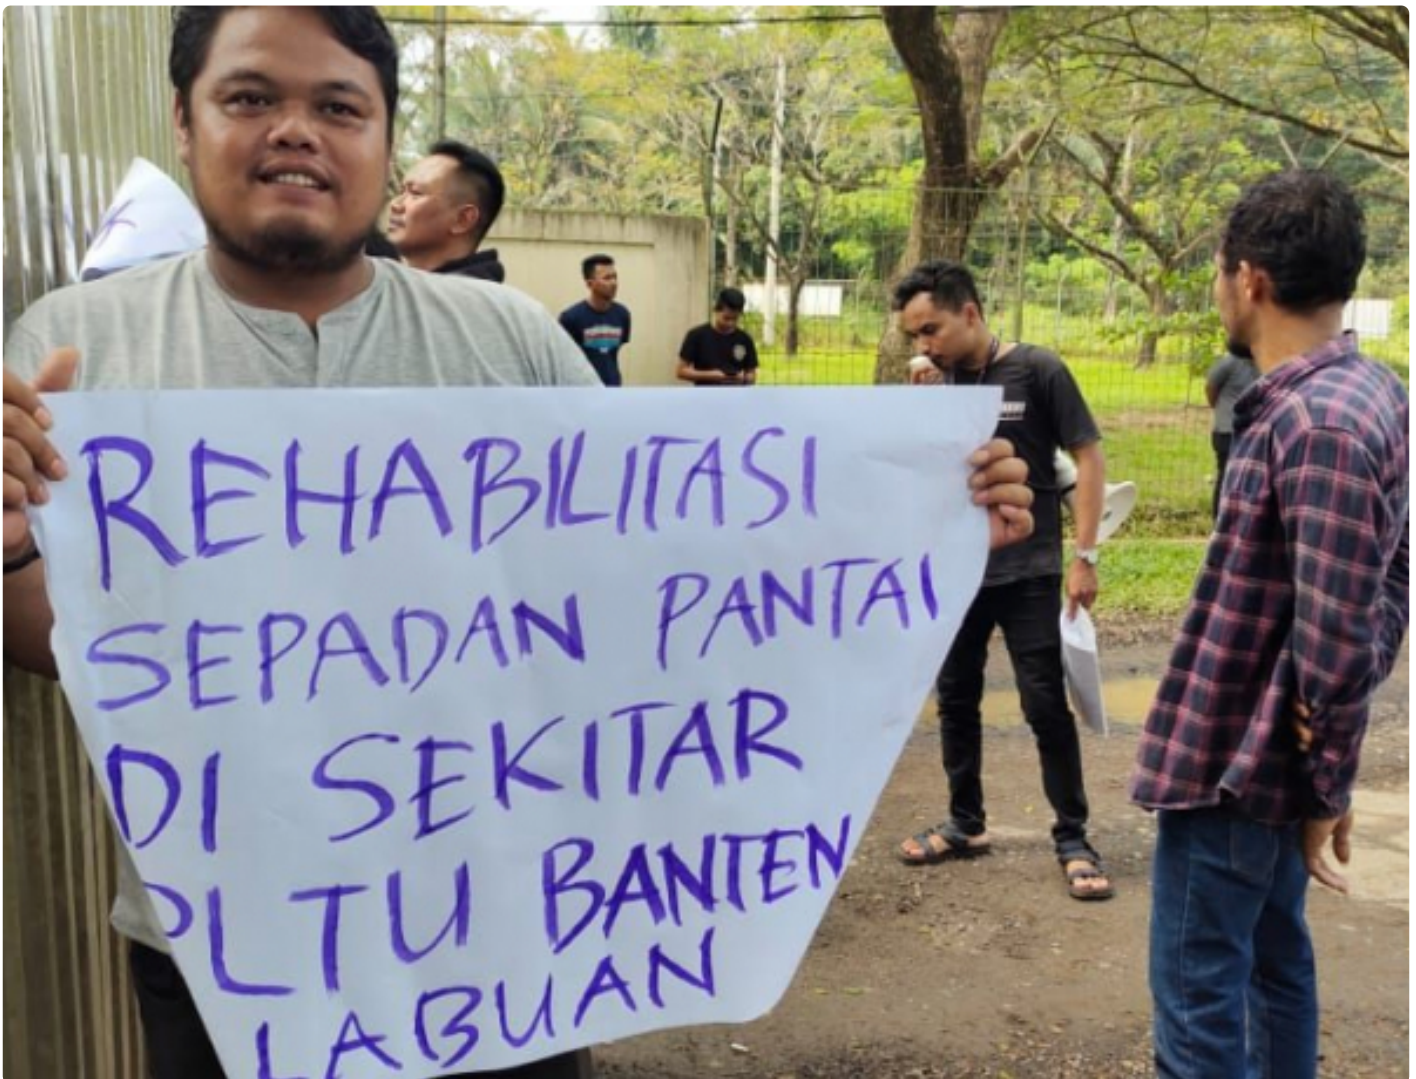 REHABILITASI
SEPADAN PANTAI
DI SEKITAR
PLTU BANTEN
LABUAN